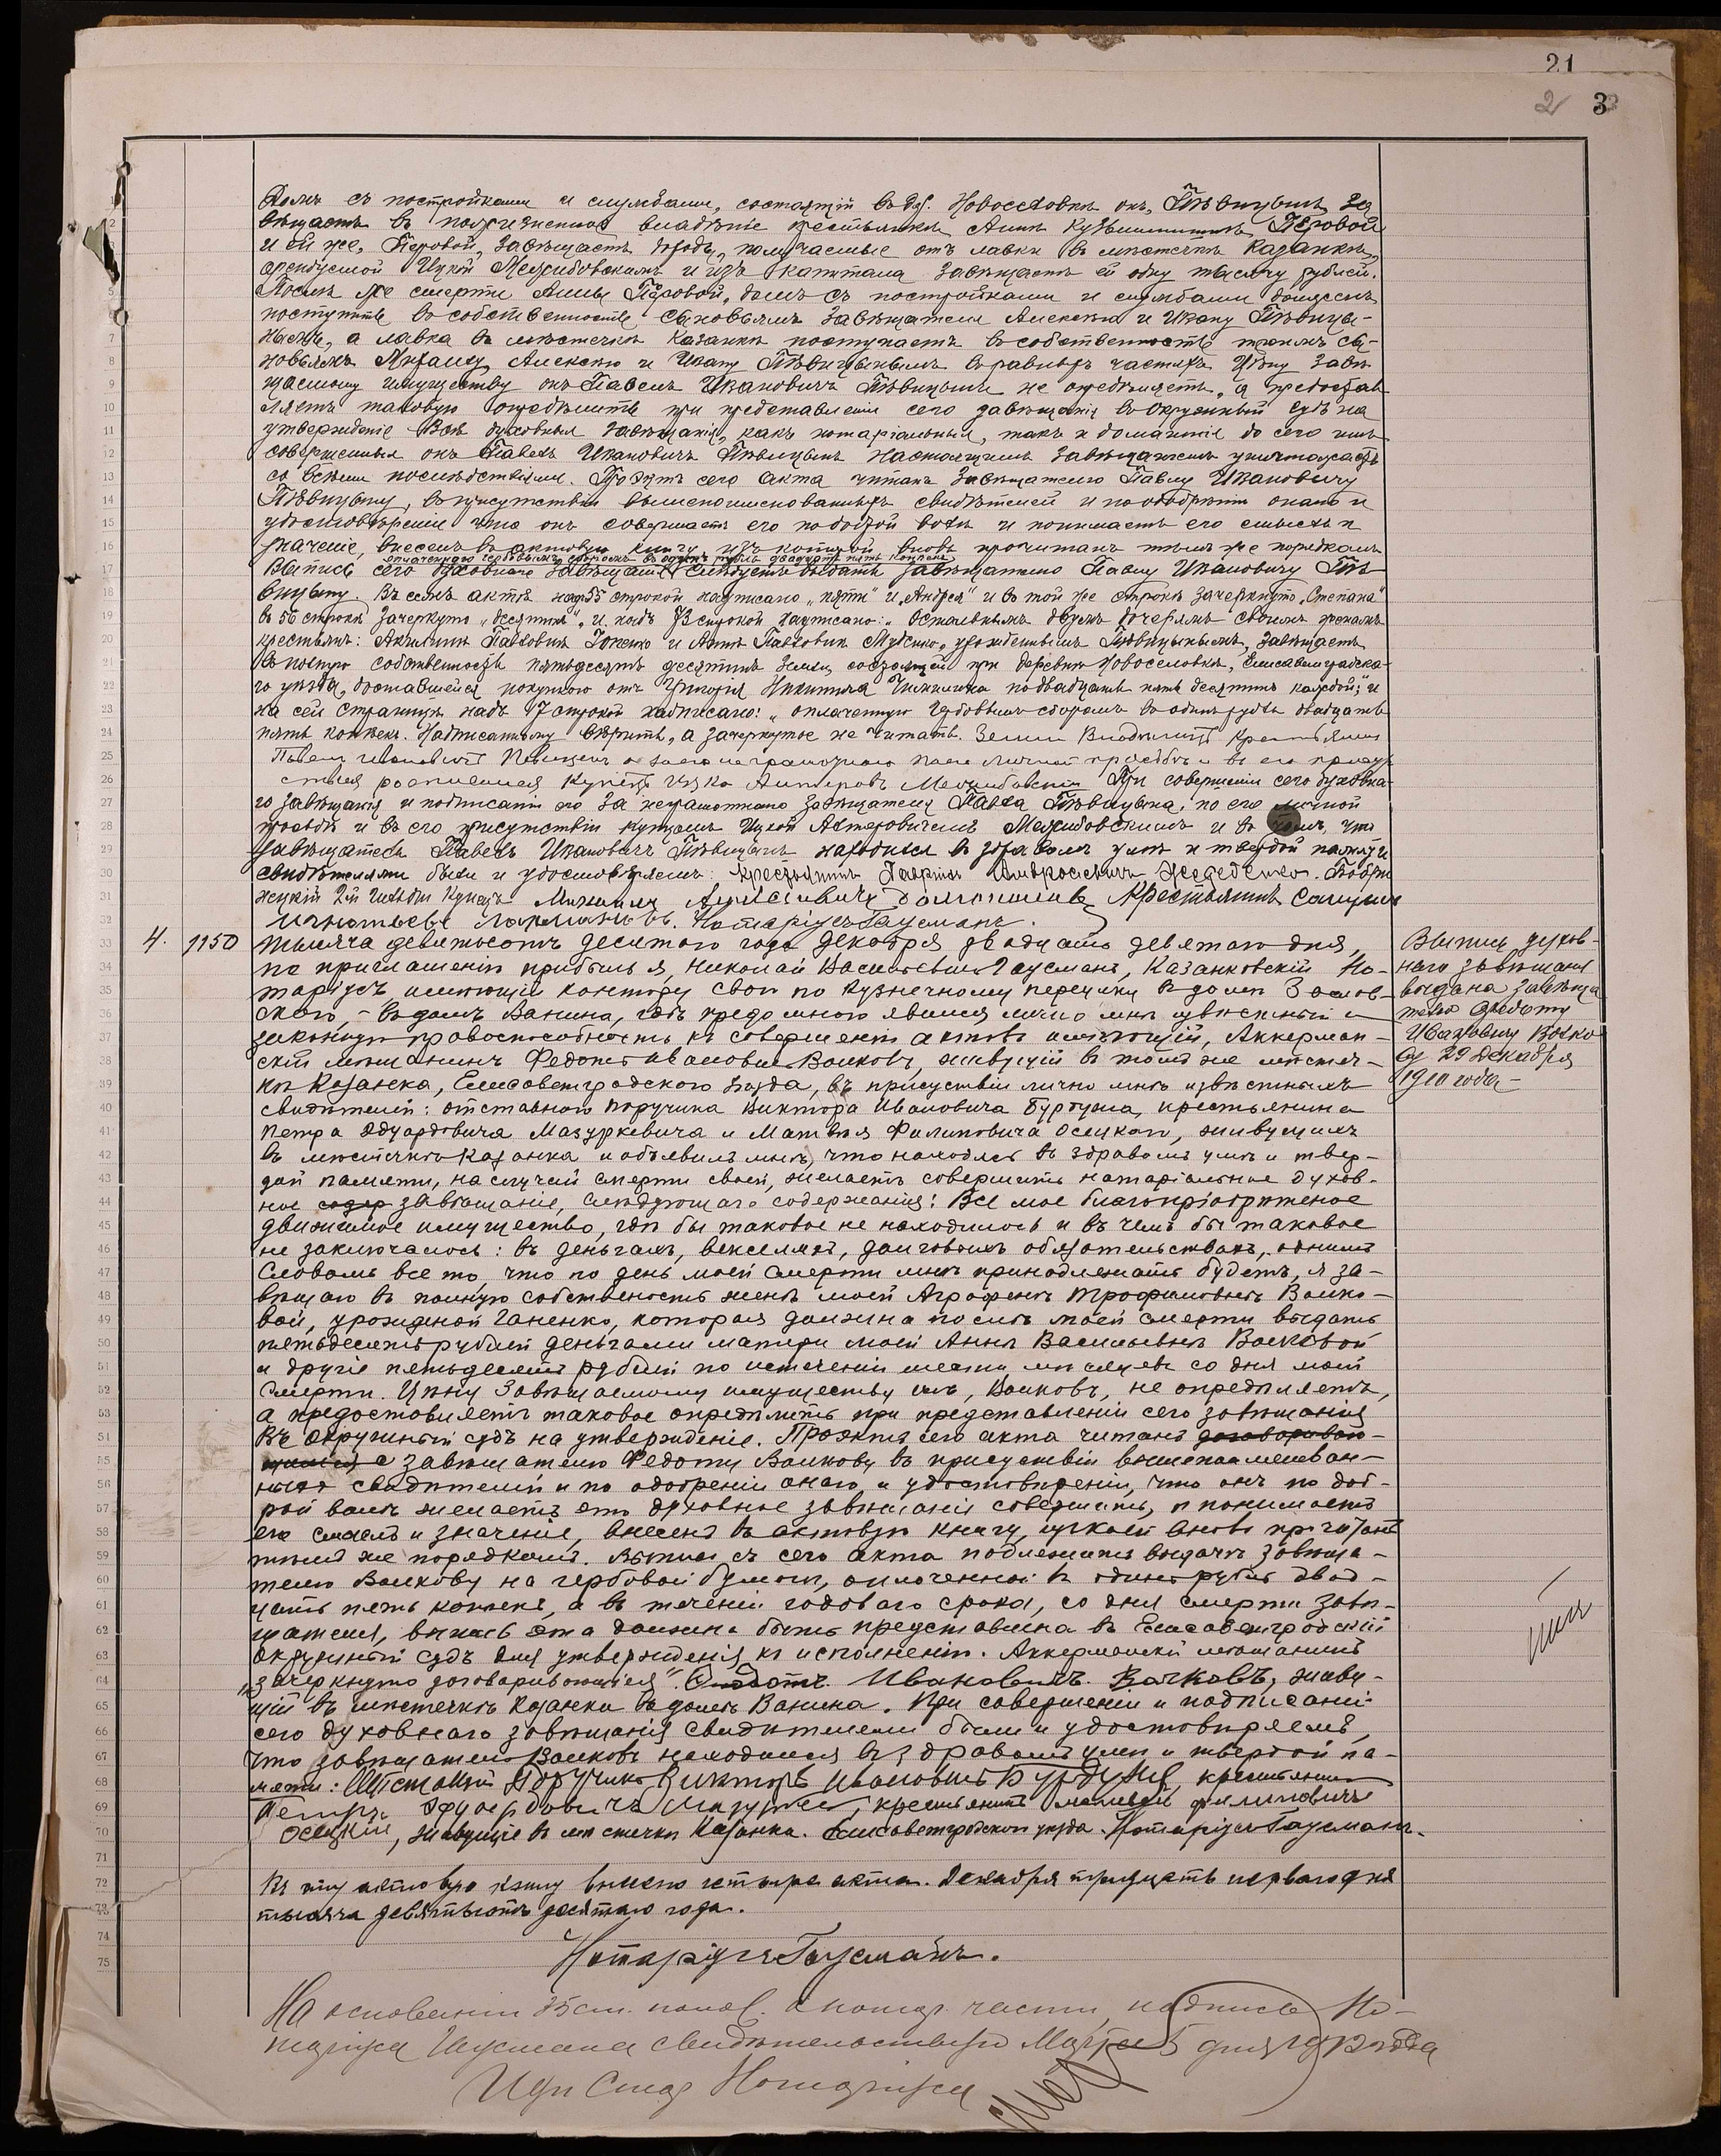 21
2 3
Домъ съ постройками и службами, состоящій въ дер. Новоселовкѣ онъ, Пѣвицынъ за
вѣщаетъ въ пожизненное владѣніе крестьянкѣ Аннѣ Кузьминишнѣ Перовой
и ей же, Перовой, завѣщаетъ доходъ, получаемые отъ лавки въ мѣстечкѣ Казанкѣ,
арендуемой Ицкой Межибовскимъ и изъ капитала завѣщаетъ ей одну тысячу рублей.
Послѣ же смерти Анны Перовой, домъ съ постройками и службами долженъ
поступить въ собственность сыновьямъ завѣщателя Алексѣю и Ивану Пѣвицы-
нымъ, а лавка въ мѣстечкѣ Казанкѣ поступаетъ въ собственность троимъ сы-
новьямъ Михаилу, Алексѣю и Ивану Пѣвицынымъ въ равныхъ частяхъ Цѣну завѣ
щаемому имуществу онъ Павелъ Ивановичъ Пѣвицынъ не опредѣляетъ, а предостав
ляетъ таковую опредѣлить при представленіи сего завѣщанія въ Окружный судъ на
утвержденіе Всѣ духовныя завѣщанія, какъ нотаріальныя, такъ и домашнія до сего имъ
совершенныя онъ Павелъ Ивановичъ Пѣвицынъ настоящимъ завѣщаніемъ уничтожаетъ
со всѣми послѣдствіями. Проэктъ сего акта читанъ завѣщателю Павлу Ивановичу
Пѣвицыну, въ присутствіи вышепоименованныхъ свидѣтелей и по одобреніи онаго и
удостовѣреніи что онъ совершаетъ его по доброй волѣ и понимаетъ его смыслъ и
значеніе, внесенъ въ актовую книгу изъ которой вновь прочитанъ тѣмъ же порядкомъ
оплаченную гербовымъ сборомъ въ одинъ рубль двадцать пять копѣекъ
Выпись сего духовнаго завѣщанія слѣдуетъ выдать завѣщателю Павлу Ивановичу Пѣ
вицыну. Въ семъ актѣ надъ 55 строкой надписано „пяти" и „Андрея" и въ той же строкѣ зачеркнуто „Степана"
въ 56 строкѣ зачеркнуто „десятинъ", и надъ 73 строкой надписано: „Остальнымъ двумъ дочерямъ своимъ женамъ
крестьянъ: Акилинѣ Павловнѣ и Аннѣ Павловнѣ урожденнымъ Пѣвицынымъ, завѣщаетъ
въ полную собственность пятьдесятъ десятинъ земли, состоящей при деревнѣ Новоселовкѣ, Елисаветградска-
го уѣзда, доставшейся покупкою отъ Григорія Никитича по двадцать пять десятинъ каждой;" и
на сей страницѣ надъ 17 строкой надписано: „оплаченную гербовымъ сборомъ въ одинъ рубль двадцать
пять копѣекъ. Надписанному вѣрить, а зачеркнутое не читать. Земли Владѣлецъ Крестьянинъ
Павелъ Ивановичъ Пѣвицынъ а за его неграмотного по его личной просьбѣ и въ его присут
ствіи росписался купецъ Ицко Антеровъ Межибовскій При совершеніи сего духовна-
го завѣщанія и подписаніи его за неграмотнаго завѣщателя Павла Пѣвицына, по его личной
просьбѣ и въ его присутствіи купцомъ Ицкой Антеровичемъ Межибовскимъ и въ томъ, что
завѣщатель Павелъ Ивановичъ Пѣвицынъ находился въ здравомъ умѣ и твердой памяти
свидѣтелями были и удостовѣряемъ: Крестьянинъ Амвросіевичъ Бобри
нецкій 2й Гильдіи Купецъ Михаилъ Алексѣевичъ Крестьянинъ
Игнатьевъ Нотаріусъ Гаусманъ.
4. 1150 Тысяча девятьсотъ десятого года Декабря двадцать девятаго дня,
по приглашенію прибылъ я, Николай Васильевичъ Гаусманъ, Казанковскій Но-
таріусъ, имѣющій контору свою по Кузнечному переулку въ домѣ Заслав-
скаго, - въ домъ Ванина, гдѣ предо мною явился лично мнѣ извѣстный и
законную правоспособность къ совершенію актовъ имѣющій, Аккерман-
скій мѣщанинъ Федотъ Ивановичъ Волковъ, живущій въ томъ же мѣстеч-
кѣ Казанка, Елисаветградского уѣзда, въ присуствіи лично мнѣ извѣстныхъ
свидѣтелей: отставного поручика Виктора Ивановича Бурдуна, крестьянина
Петра Эдуардовича Мазуркевича и Матвѣя Филиповича Осецкаго, живущихъ
въ мѣстечкѣ Казанка и объявилъ мнѣ, что находясь въ здравомъ умѣ и твер-
дой памяти, на случай смерти своей, желаетъ совершить нотаріальное духов-
ное содер завѣщаніе, слѣдующаго содержанія: Все мое благопріобрѣтеное
движимое имущество, гдѣ бы таковое не находилось и въ чемъ бы таковое
не заключалось: въ деньгахъ, векселяхъ, долговыхъ обязательствахъ, однимъ
словомъ все то, что по день моей смерти мнѣ принадлежать будетъ, я за-
вѣщаю въ полную собственость женѣ моей Аграфенѣ Трофимовнѣ Волко-
вой, урожденой Ганенко, которая должна послѣ моей смерти выдать
пятьдесятъ рублей деньгами матери моей Аннѣ Васильевнѣ Волковой
и другіе пятьдесятъ рублей по истеченіи шести мѣсяцевъ со дня моей
смерти. Цѣну завѣщаемому имуществу онъ, Волковъ, не опредѣляетъ,
а предоставляетъ таковое опредѣлить при представленіи сего завѣщанія
въ окружный судъ на утвержденіе. Проэктъ сего акта читанъ договариваю-
щимися а завѣщателю Федоту Волкову въ присуствіи вышепоименован-
ныхъ свидѣтелей и по одобреніи онаго, и удостовѣреніи, что онъ по доб-
рой волѣ желаетъ это духовное завѣщаніе совершить, и понимаетъ
его смыслъ и значеніе, внесенъ въ актовую книгу, изъ коей вновь прочитанъ
тѣмъ же порядкомъ. Выпись съ сего акта подлежитъ выдачѣ завѣща-
телю Волкову на гербовой бумагѣ, оплоченной въ одинъ рубль двад-
цать пять копѣекъ, а въ теченіи годоваго срока, со дня смерти завѣ-
щателя, выпись эта должна быть представлена въ Елисаветградскій
окружный судъ для утвержденія къ исполненію. Аккерманскій мѣщанинъ
„зачеркнуто договаривающіеся". Федотъ. Ивановичъ. Волковъ, живу-
щій въ мѣстечкѣ Казанка въ домѣ Ванина. При совершеніи и подписаніи
сего духовнаго завѣщанія свидѣтелями были и удостовѣряемъ,
что завѣщатель Волковъ находился въ здравомъ умѣ и твердой па-
мяти: Отставной Поручикъ Викторъ Ивановичъ Бурдунъ, крестьянинъ
Петръ Эдуардовичъ крестьянинъ Матвѣй Филиповичъ
Осецкій, живущіе въ мѣстечкѣ Казанка. Елисаветградскаго уѣзда. Нотаріусъ Гаусманъ.
Выпись духов-
наго завѣщанія
выдана завѣща
телю Федоту
Ивановичу Волко-
ву 29 Декабря
1910 года-
Въ эту актовую книгу внесено четыре акта. Декабря тридцать перваго дня
тысяча девятьсотъ десятаго года.
Нотаріусъ Гаусманъ.
На основаніи 35 ст. нотар. части, подпись Но-
таріуса Гаусмана свидѣтельствую Марта 5 дня года
Нотаріуса